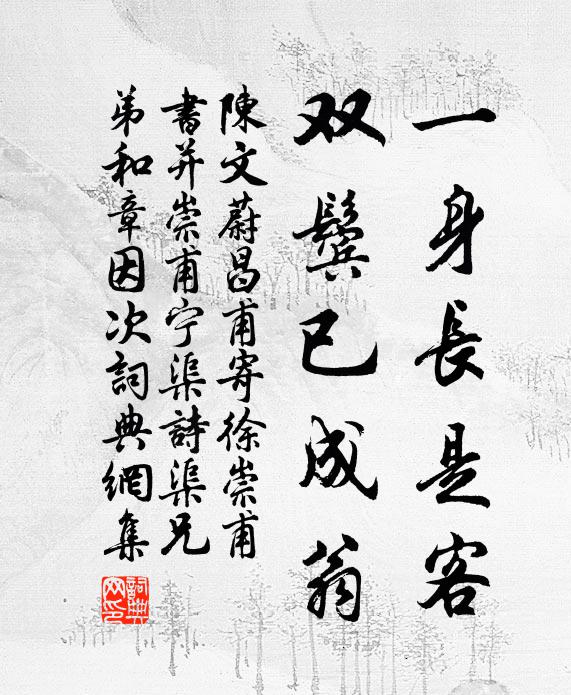 一身長是客
双鬓已成翁
陳文蔚昌甫寄徐崇甫
書并崇甫宁渠詩渠兄
弟和章因次詞典網集
詞典网印